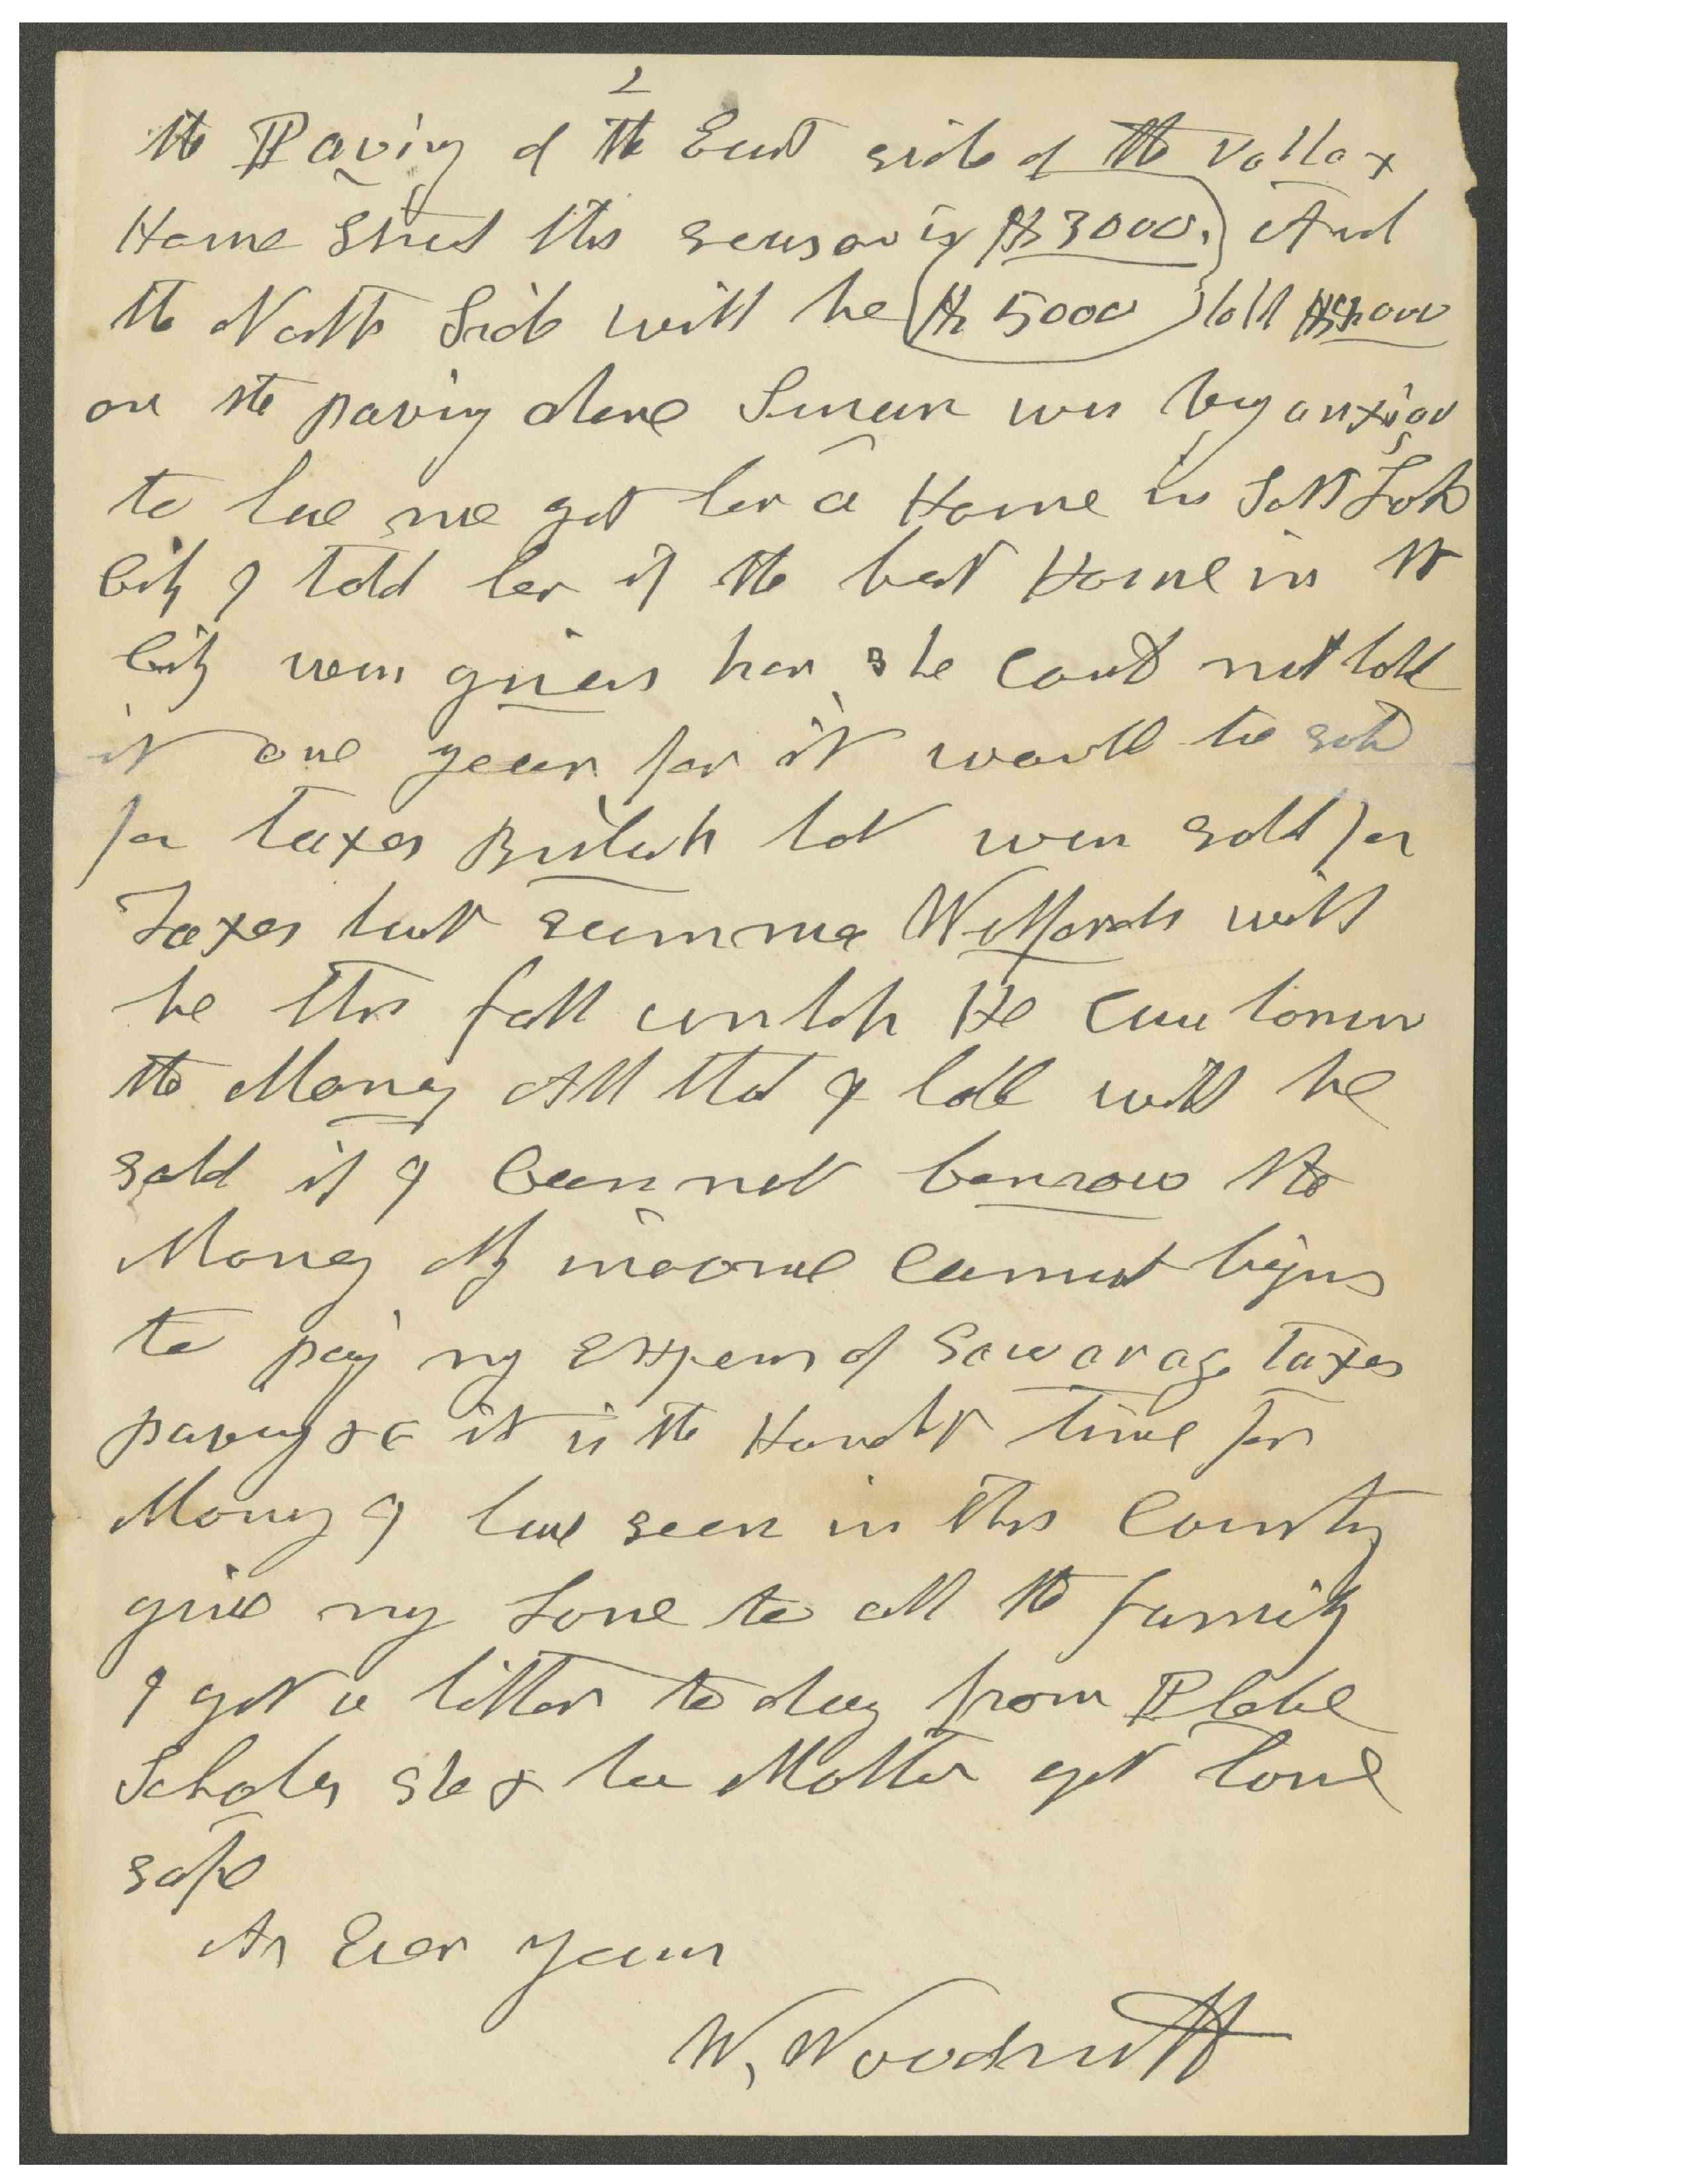 2
the Paving of the East side of the Vallax
Home Street this season is $3000. And
the North Side will be $5000 told $8000
on the paving alone Susan was very anxious
to have me get her a Home in Salt Lake
City I told her if the best Home in the
City were given her she could not hold
it one year for it would be sold
for taxes Beulah lot was sold for
Taxes last summer Wilfords will
be this fall unless He can borrow
the Money All that I hold will be
sold if I Cannot borrow the
Money My income Cannot begin
to pay my Expens of Sewarage Taxes
paving &c it is the Hardest time for
Money I have seen in this Country
give my Love to all the family
I got a letter to day from Phebe
Scholes she & her Mother got home
safe
As Ever yours
W. Woodruff